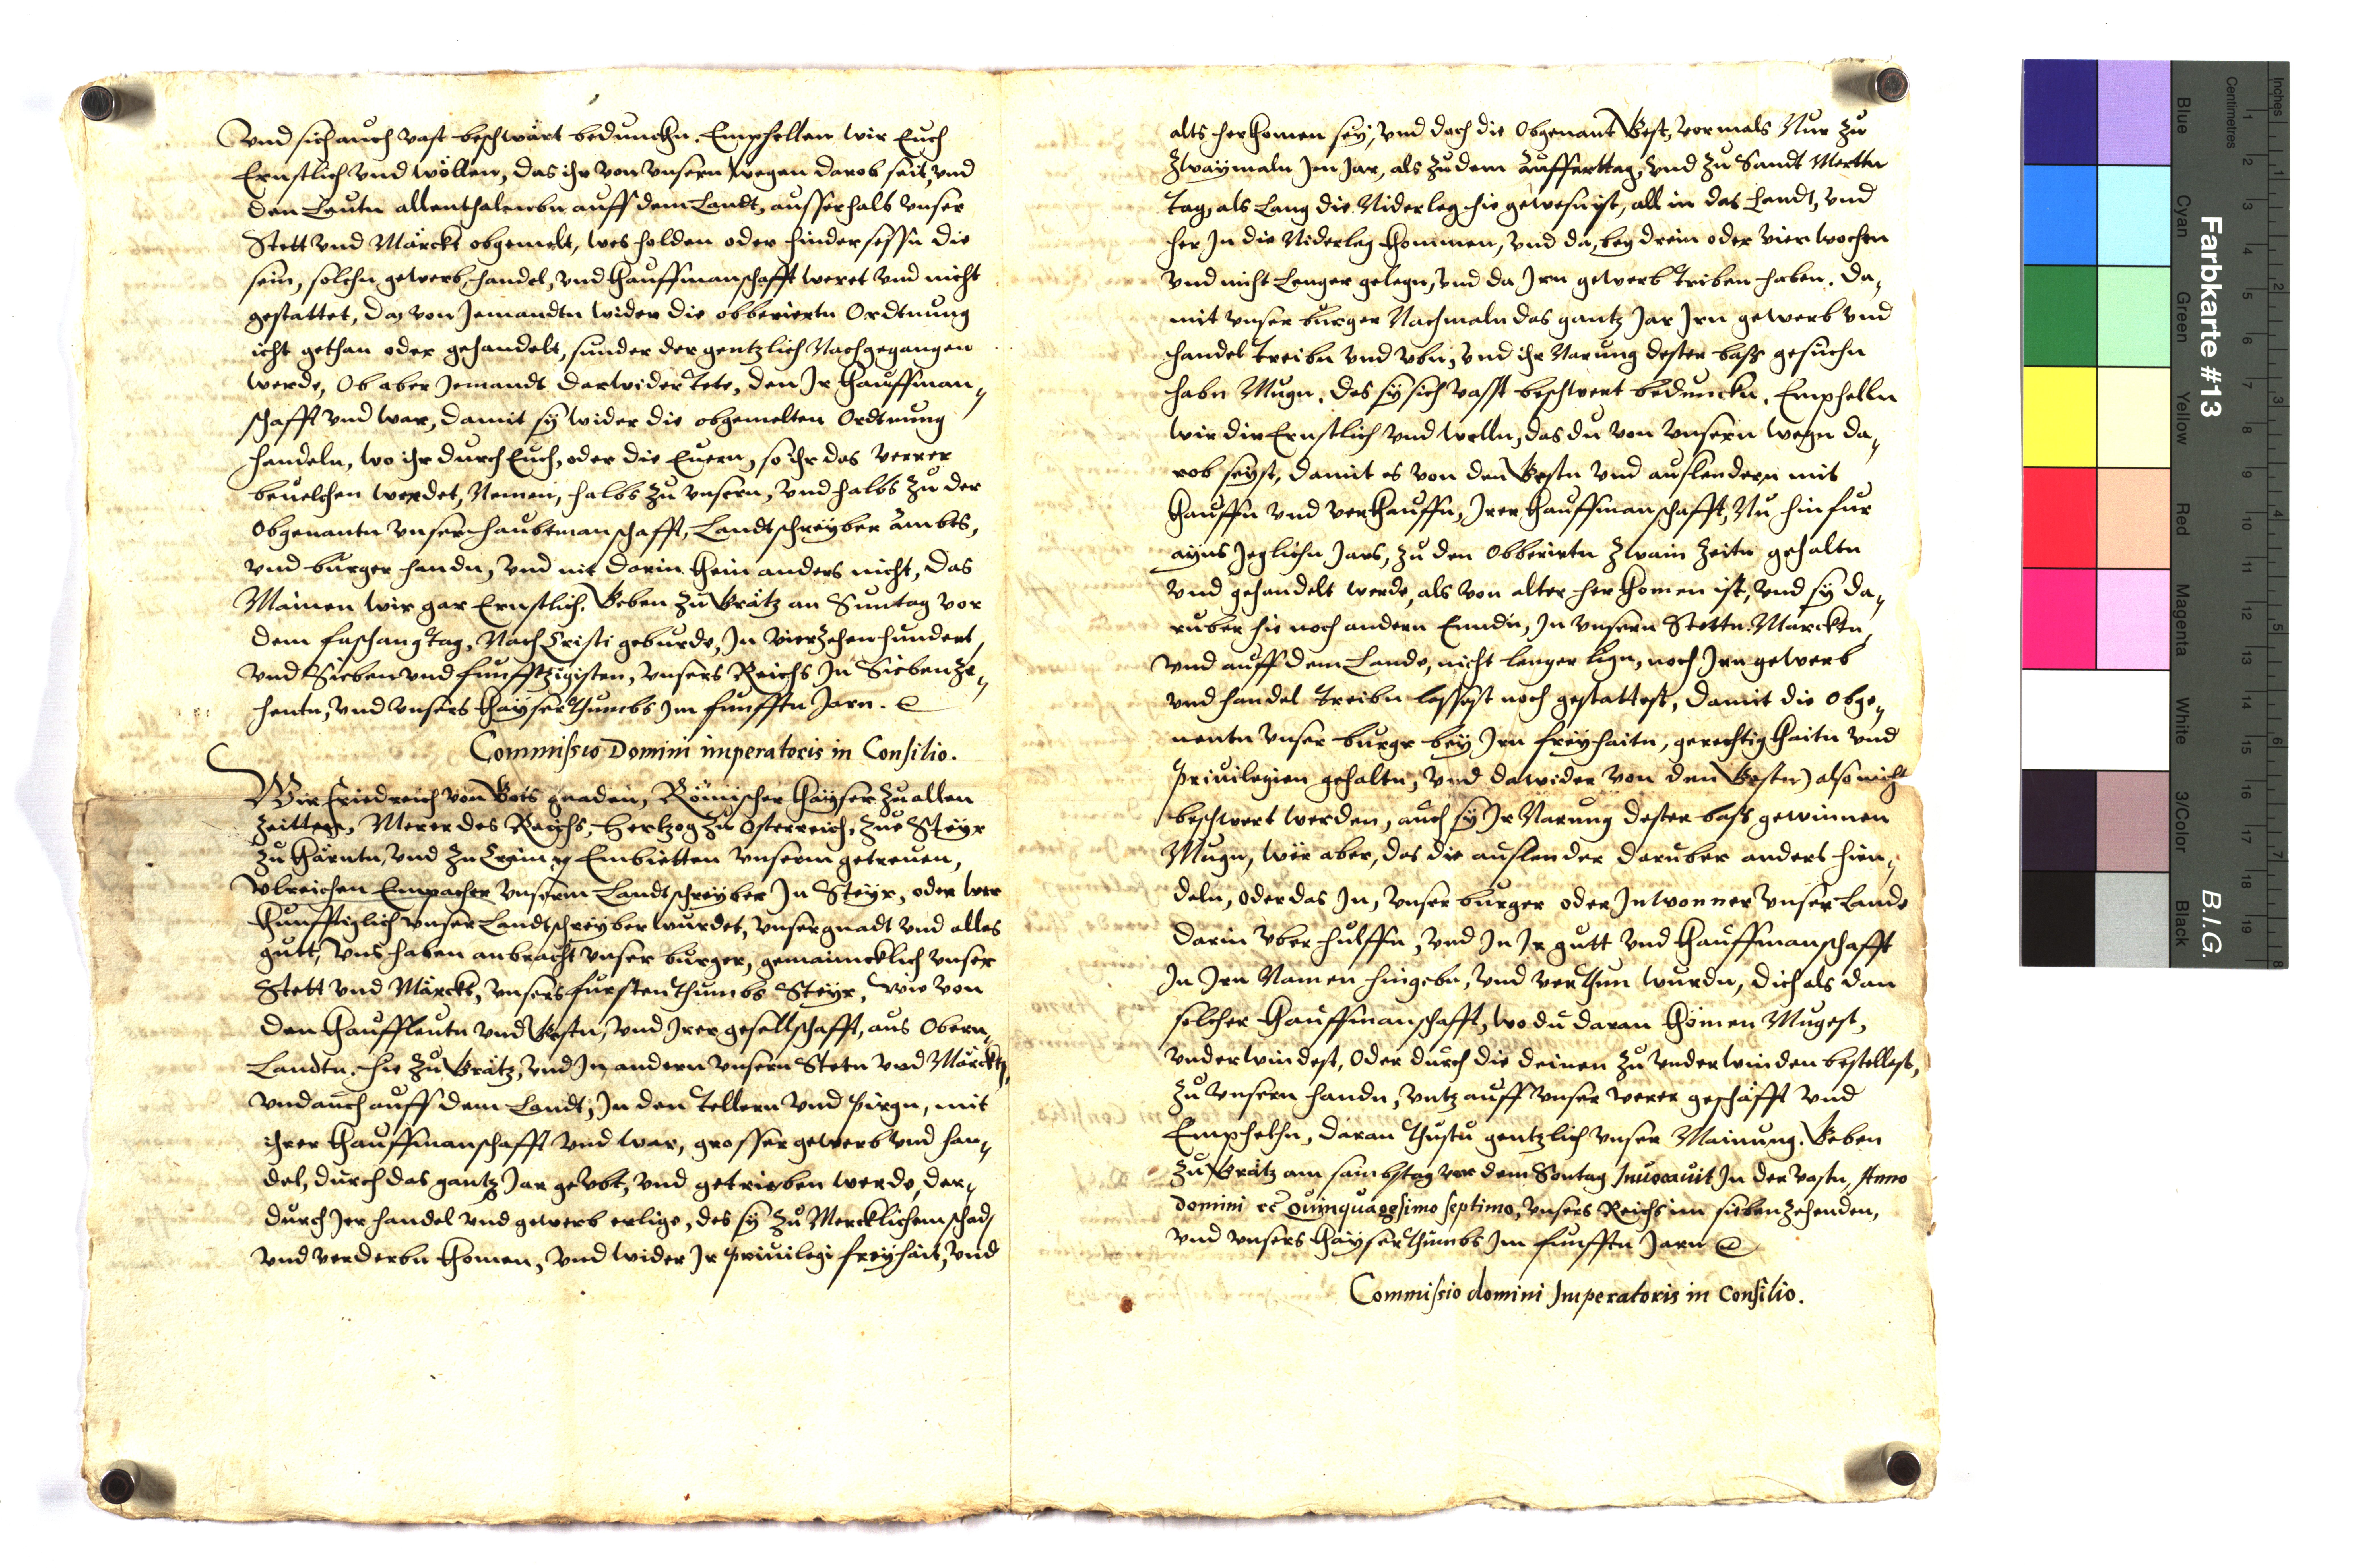 Vnd sich auch vast beschwärt beduncken. Empfellen wir Euch
Ernstlich vnd wöllen, das ihr von vnsern wegen darob seit, vnd
den Leutn allenthalenbn auff dem Landt, ausserhalb vnser
Stett vnd Märckt obgemelt, wes holden oder hindersessn die
sein, solchn gewerb, handel, vnd khauffmanschafft weret vnd nicht
gestattet, daz von Jemandtn wider die obberiertn Ordtnung
icht gethan oder gehandelt, sunder der gentzlich Nachgegangen
werde, Ob aber Jemandt darwider tete, den Jr khauffman„
schafft vnd war, damit sÿ wider die obgemelten Ordtnung
handeln, wo ihr durch Euch, oder die Euern, so ihr das verrer
beuelchen werdet, Nemen, halbs zu vnsern, vnd halbs zu der
Obgenantn vnser haubtmanschafft, Landtschreÿber ämbts,
vnd burger handn, vnd nit darin khein anders nicht, das
Mainen wir gar Ernstlich. Geben zu Grätz an Suntag vor
dem faschangtag, Nach Cristi geburde, In vierzehenhundert
vnd Sieben vnd funfftzigisten, vnsers Reichs In Siebenze„
hentn, vnd vnsers khaÿserthumbs Im funfftn Jarn.
Commissio Domini imperatoris in Consilio.
Wir Friedreich von Gots gnaden, Römischer khaÿser zu allen
zeitten, Merer des Reichs, Hertzog zu Österreich, zue Steÿr
zu khärntn, vnd zu Crain ꝛc Embietten vnserm getreuen,
Vlreichen Empacher vnserm Landtschreÿber In Steÿr, oder wer
khunfftiglich vnser Landtschreÿber wurdet, vnser gnadt vnd alles
gutt, vns haben anbracht vnser burger, gemainicklich vnser
Stett vnd Märckt, vnsers furstenthumbs Steÿr, wie von
den khauffleutn vnd Gestn, vnd Jrer gesellschafft, aus Obern„
Landtn, hie zu Grätz, vnd In andern vnsern Stetn vnd Märcktn,
vnd auch auff dem Landt, In den tellern vnd pirgn, mit
ihrer khauffmanschafft vnd war, grosser gewerb vnd han„
del, durch das gantz Jar geubt, vnd getrieben werde, dar„
durch Jer handel vnd gewerb erlige, des sÿ zu Mercklichem schad
vnd verderbn khomen, vnd wider Jr priuilegi freÿhait, vnd
alts herkhomen seÿ, vnd doch die Obgenant Gest, vormals Nur zu
zwaÿmaln Im Jar, als zu dem auffarttag, vnd zu Sandt Mertn
tag, als Lang die Niderleg hie gewesn ist, all in das Landt, vnd
her In die Niderleg khommen, vnd da, beÿ drein oder vier wochen
vnd nicht Lenger gelegn, vnd da Jrn gewerb triben haben. Da„
mit vnser burger Nachmaln das gantz Jar Jrn gewerb vnd
handel treibn vnd vbn, vnd ihr Narung dester bass gesuchn
habn Mugn. des sÿ sich vasst beschwert beduncken. Emphelln
wir dir Ernstlich vnd welln, das du von vnsern wegn da„
rob seÿst, damit es von den Gestn vnd auslendern mit
khauffn vnd verkhauffn, Jrer khauffmanschafft, Nu hinfur
aÿns Jeglichn Jars, zu den Obberiertn zwain zeitn gehaltn
vnd gehandelt werde, als von alter herkhomen ist, vnd sÿ da„
ruber hie noch andern Enndn, In vnsern Stettn, Marcktn,
vnd auff dem Lande, nicht lenger lign, noch Jrn gewerb
vnd handel treibn lassest noch gestattest, damit die Obge„
nentn vnser burger beÿ Jrn freÿhaitn, gerechtigkhaitn vnd
Priuilegien gehaltn, vnd dawider von den Gesten also nicht
beschwert werden, auch sÿ Jr Narung dester bass gewinnen
Mugn, wër aber, das die auslender daruber anders hien„
deln, Oder das In, vnser burger oder Inwonner vnser Lande
darin vber hulffn, vnd In Jr gutt vnd khauffmanschafft
In Jrn Namen hingebn, vnd verthun wurdn, dich als dan
solcher khauffmanschafft, wo du daran khömen Mugest,
vnderwindest, Oder durch die deinen zu vnderwinden bestellest,
zu vnsern handn, vntz auff vnser verer geschäfft vnd
Emphelhn, daran thustu gentzlich vnser Mainung. Geben
zu Grätz am sambstag vor dem Sontag Inuocauit In der vastn, Anno
domini ꝛc Quinquagesimo septimo, vnsers Reichs im siebenzehenden,
vnd vnsers khaÿserthumbs Im funfftn Jarn
Commissio domini Imperatoris in Consilio.
Farbkarte #13
B.I.G.
Blue
Cyan
Green
Yellow
Red
Magenta
White
3/Color
Black
Centimetres
Inches
1 2 3 4 5 6 7 8 9 10 11 12 13 14 15 16 17 18 19
1 2 3 4 5 6 7 8